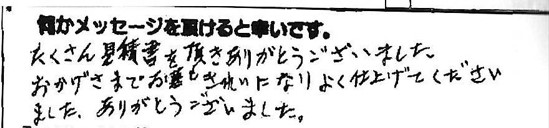 何かメッセージを頂けると幸いです。
たくさん見積書を頂きありがとうございました。
おかげさまでお墓もきれいになりよく仕上げてください
ました。ありがとうございました。